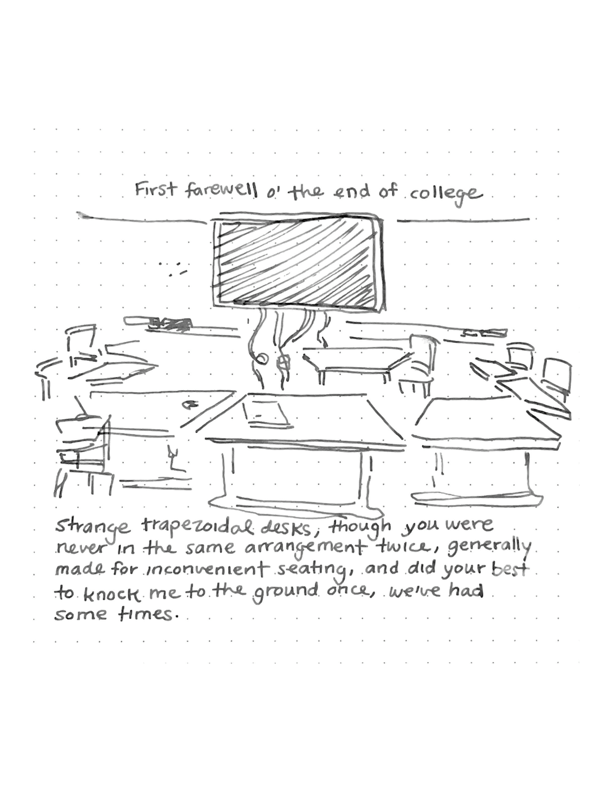 First farewell o' the end of college
Strange trapezoidal desks, though you were
never in the same arrangement twice, generally
made for inconvenient seating, and did your best
to knock me to the ground once, we've had
some times.